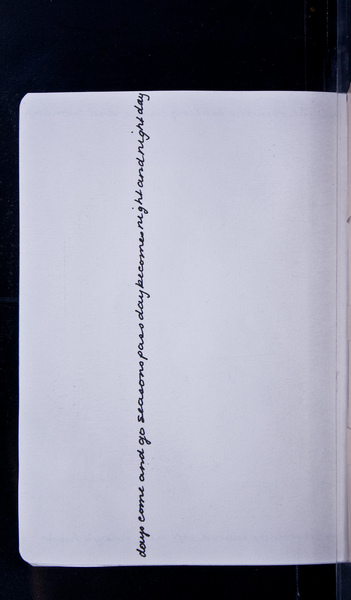 days come and go seasons pass day becomes night and night day